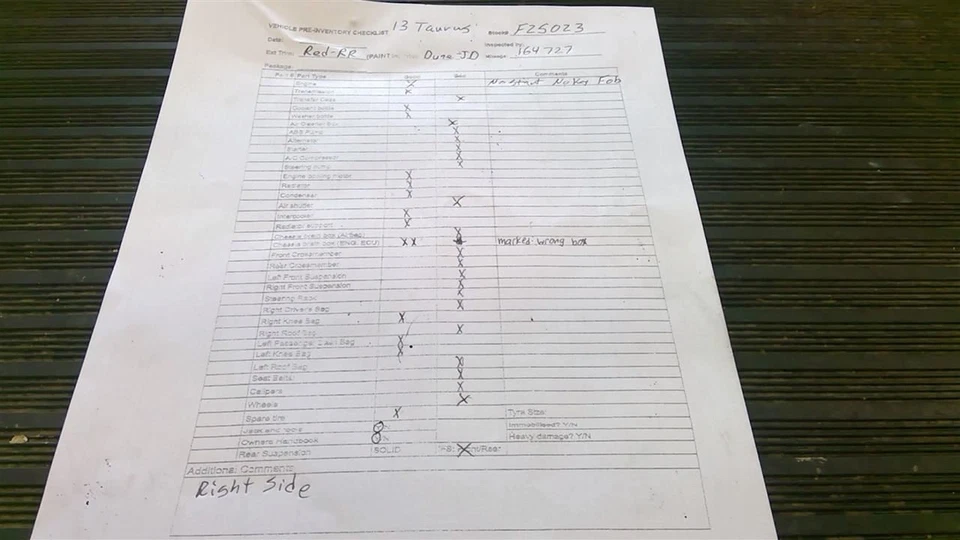 VEHICLE PRE-INVENTORY CHECKLIST 13 Taurus Stock# F25023
Date: Inspected by
Ext Trim: Red-RR (PAINT Dune-JD Mileage 164727
Package:
Part # Part Type Good Bad Comments
Engine X No Start No Key Fob
Transmission X
Transfer Case X
Coolant bottle X
Washer bottle X
Air Cleaner Box X
ABS Pump X
Alternator X
Starter X
A/C Compressor X
Steering pump X
Engine cooling motor X
Radiator X
Condenser X
Air shutter X
Intercooler X
Radiator support X
Chassis brain box (Air Bag) X
Chassis brain box (ENG. ECU) X X marked wrong box
Front Crossmember X
Rear Crossmember X
Left Front Suspension X
Right Front Suspension X
Steering Rack X
Right Driver's Bag X
Right Knee Bag X
Right Roof Bag X
Left Passenger Dash Bag X
Left Knee Bag X
Left Roof Bag X
Seat Belts X
Calipers X
Wheels X
Spare tire X Tyre Size:
Jack and tools Immobilised? Y/N
Owners Handbook Heavy damage? Y/N
Rear Suspension SOLID X /Rear
Additional Comments
Right Side